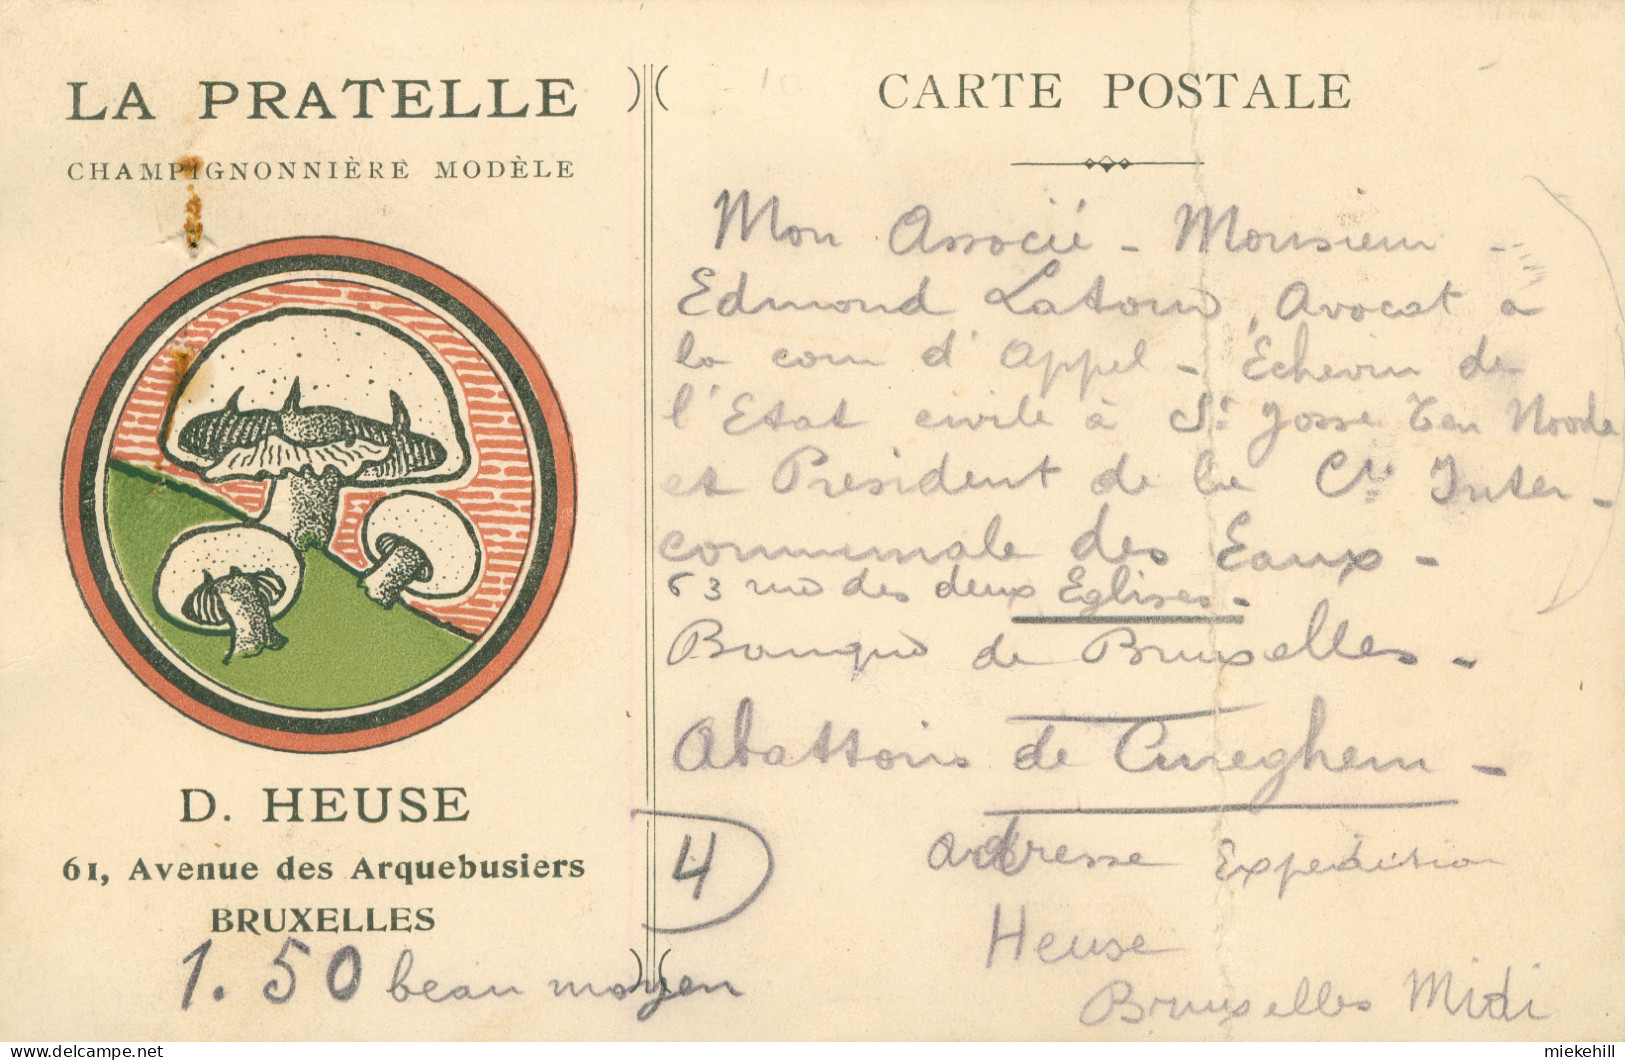 LA PRATELLE
CHAMPIGNONNIÈRE MODÈLE
D. HEUSE
61, Avenue des Arquebusiers
BRUXELLES
1.50 beau moyen
CARTE POSTALE
Mon Associé - Monsieur -
Edmond Latour, Avocat à
la cour d'Appel - Echevin de
l'Etat civile à St Josse Ten Noode
et President de la Cie Inter-
communale des Eaux -
63 rue des deux Eglises -
Banque de Bruxelles -
Abattoirs de Cureghem -
4
adresse Expédition
Heuse
Bruxelles Midi
delcampe.net
miekehill